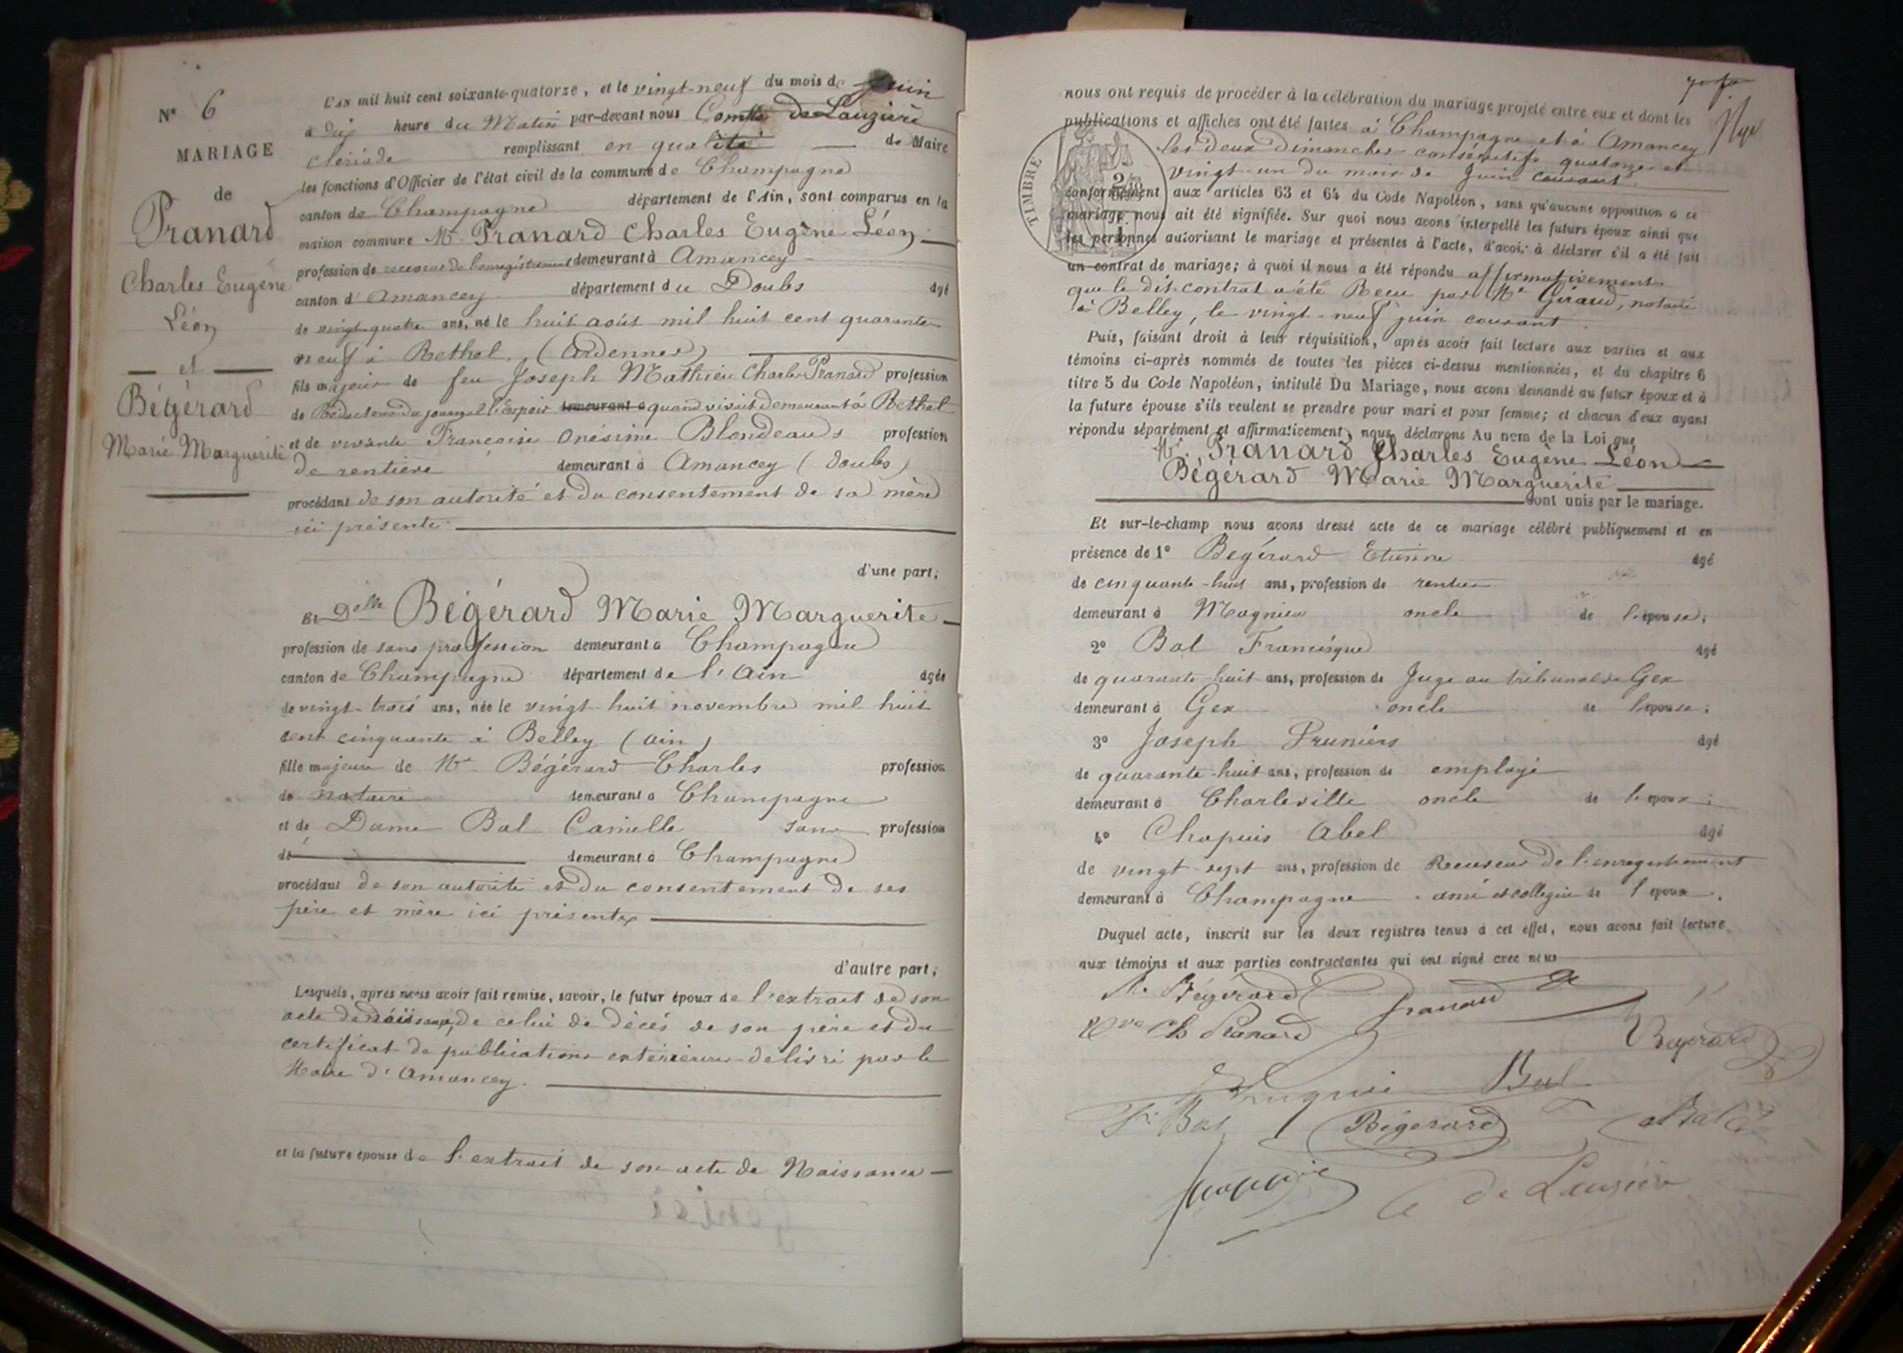 N° 6
MARIAGE
de
Pranard
Charles Eugène
Léon
et
Bégérard
Marie Marguerite
L'AN mil huit cent soixante-quatorze, et le vingt-neuf du mois de Juin
à dix heure du Matin par-devant nous Comte de Lauzière
remplissant en qualité de Maire
les fonctions d'Officier de l'état civil de la commune de Champagne
canton de Champagne département de l'Ain, sont comparus en la
maison commune Mr Pranard Charles Eugène Léon
profession de receveur de l'enregistrement demeurant à Amancey
canton d'Amancey département du Doubs âgé
de vingt-quatre ans, né le huit août mil huit cent quarante
neuf à Rethel (Ardennes)
fils majeur de feu Joseph Mathieu Charles Pranard profession
de Rédacteur du journal l'Espoir demeurant à quand vivait demeurant à Rethel
et de vivante Françoise Onésime Blondeau profession
de rentière demeurant à Amancey (Doubs)
procédant de son autorité et du consentement de sa mère
ici présente.
d'une part;
Et Delle Bégérard Marie Marguerite
profession de sans profession demeurant à Champagne
canton de Champagne département de l'Ain âgée
de vingt-trois ans, née le vingt-huit novembre mil huit
cent cinquante à Belley (Ain)
fille majeure de Mr Bégérard Charles profession
de notaire demeurant à Champagne
et de Dame Bal Camille sans profession
de demeurant à Champagne
procédant de son autorité et du consentement de ses
père et mère ici présents
d'autre part;
Lesquels, après nous avoir fait remise, savoir, le futur époux de l'extrait de son
acte de naissance, de celui de décès de son père et du
certificat de publications extérieures délivré par le
Maire d'Amancey.
et la future épouse de l'extrait de son acte de Naissance
nous ont requis de procéder à la célébration du mariage projeté entre eux et dont les
publications et affiches ont été faites à Champagne et à Amancey
les deux dimanches consécutifs quatorze et
vingt-un du mois de Juin courant
TIMBRE
conformément aux articles 63 et 64 du Code Napoléon, sans qu'aucune opposition à ce
mariage nous ait été signifiée. Sur quoi nous avons interpellé les futurs époux ainsi que
les personnes autorisant le mariage et présentes à l'acte, d'avoir à déclarer s'il a été fait
un contrat de mariage; à quoi il nous a été répondu affirmativement
que le dit contrat a été Reçu par Me Giraud, notaire
à Belley, le vingt-neuf juin courant.
Puis, faisant droit à leur réquisition, après avoir fait lecture aux parties et aux
témoins ci-après nommés de toutes les pièces ci-dessus mentionnées, et du chapitre 6
titre 5 du Code Napoléon, intitulé Du Mariage, nous avons demandé au futur époux et à
la future épouse s'ils veulent se prendre pour mari et pour femme; et chacun d'eux ayant
répondu séparément et affirmativement, nous déclarons Au nom de la Loi que
Mr. Pranard Charles Eugène Léon
Bégérard Marie Marguerite
sont unis par le mariage.
Et sur-le-champ nous avons dressé acte de ce mariage célébré publiquement et en
présence de 1° Begérard Etienne âgé
de cinquante-huit ans, profession de rentier
demeurant à Magnieu oncle de l'épouse;
2° Bal Francisque âgé
de quarante-huit ans, profession de Juge au tribunal de Gex
demeurant à Gex oncle de l'épouse;
3° Joseph Pruniers âgé
de quarante-huit ans, profession de employé
demeurant à Charleville oncle de l'époux;
4° Chapuis Abel âgé
de vingt-sept ans, profession de Receveur de l'enregistrement
demeurant à Champagne ami et collègue de l'époux.
Duquel acte, inscrit sur les deux registres tenus à cet effet, nous avons fait lecture
aux témoins et aux parties contractantes qui ont signé avec nous
M. Bégérard Pranard
Vve Ch Pranard Begérard
Bal
Fs Bal Bégérard
Cte de Lauzière